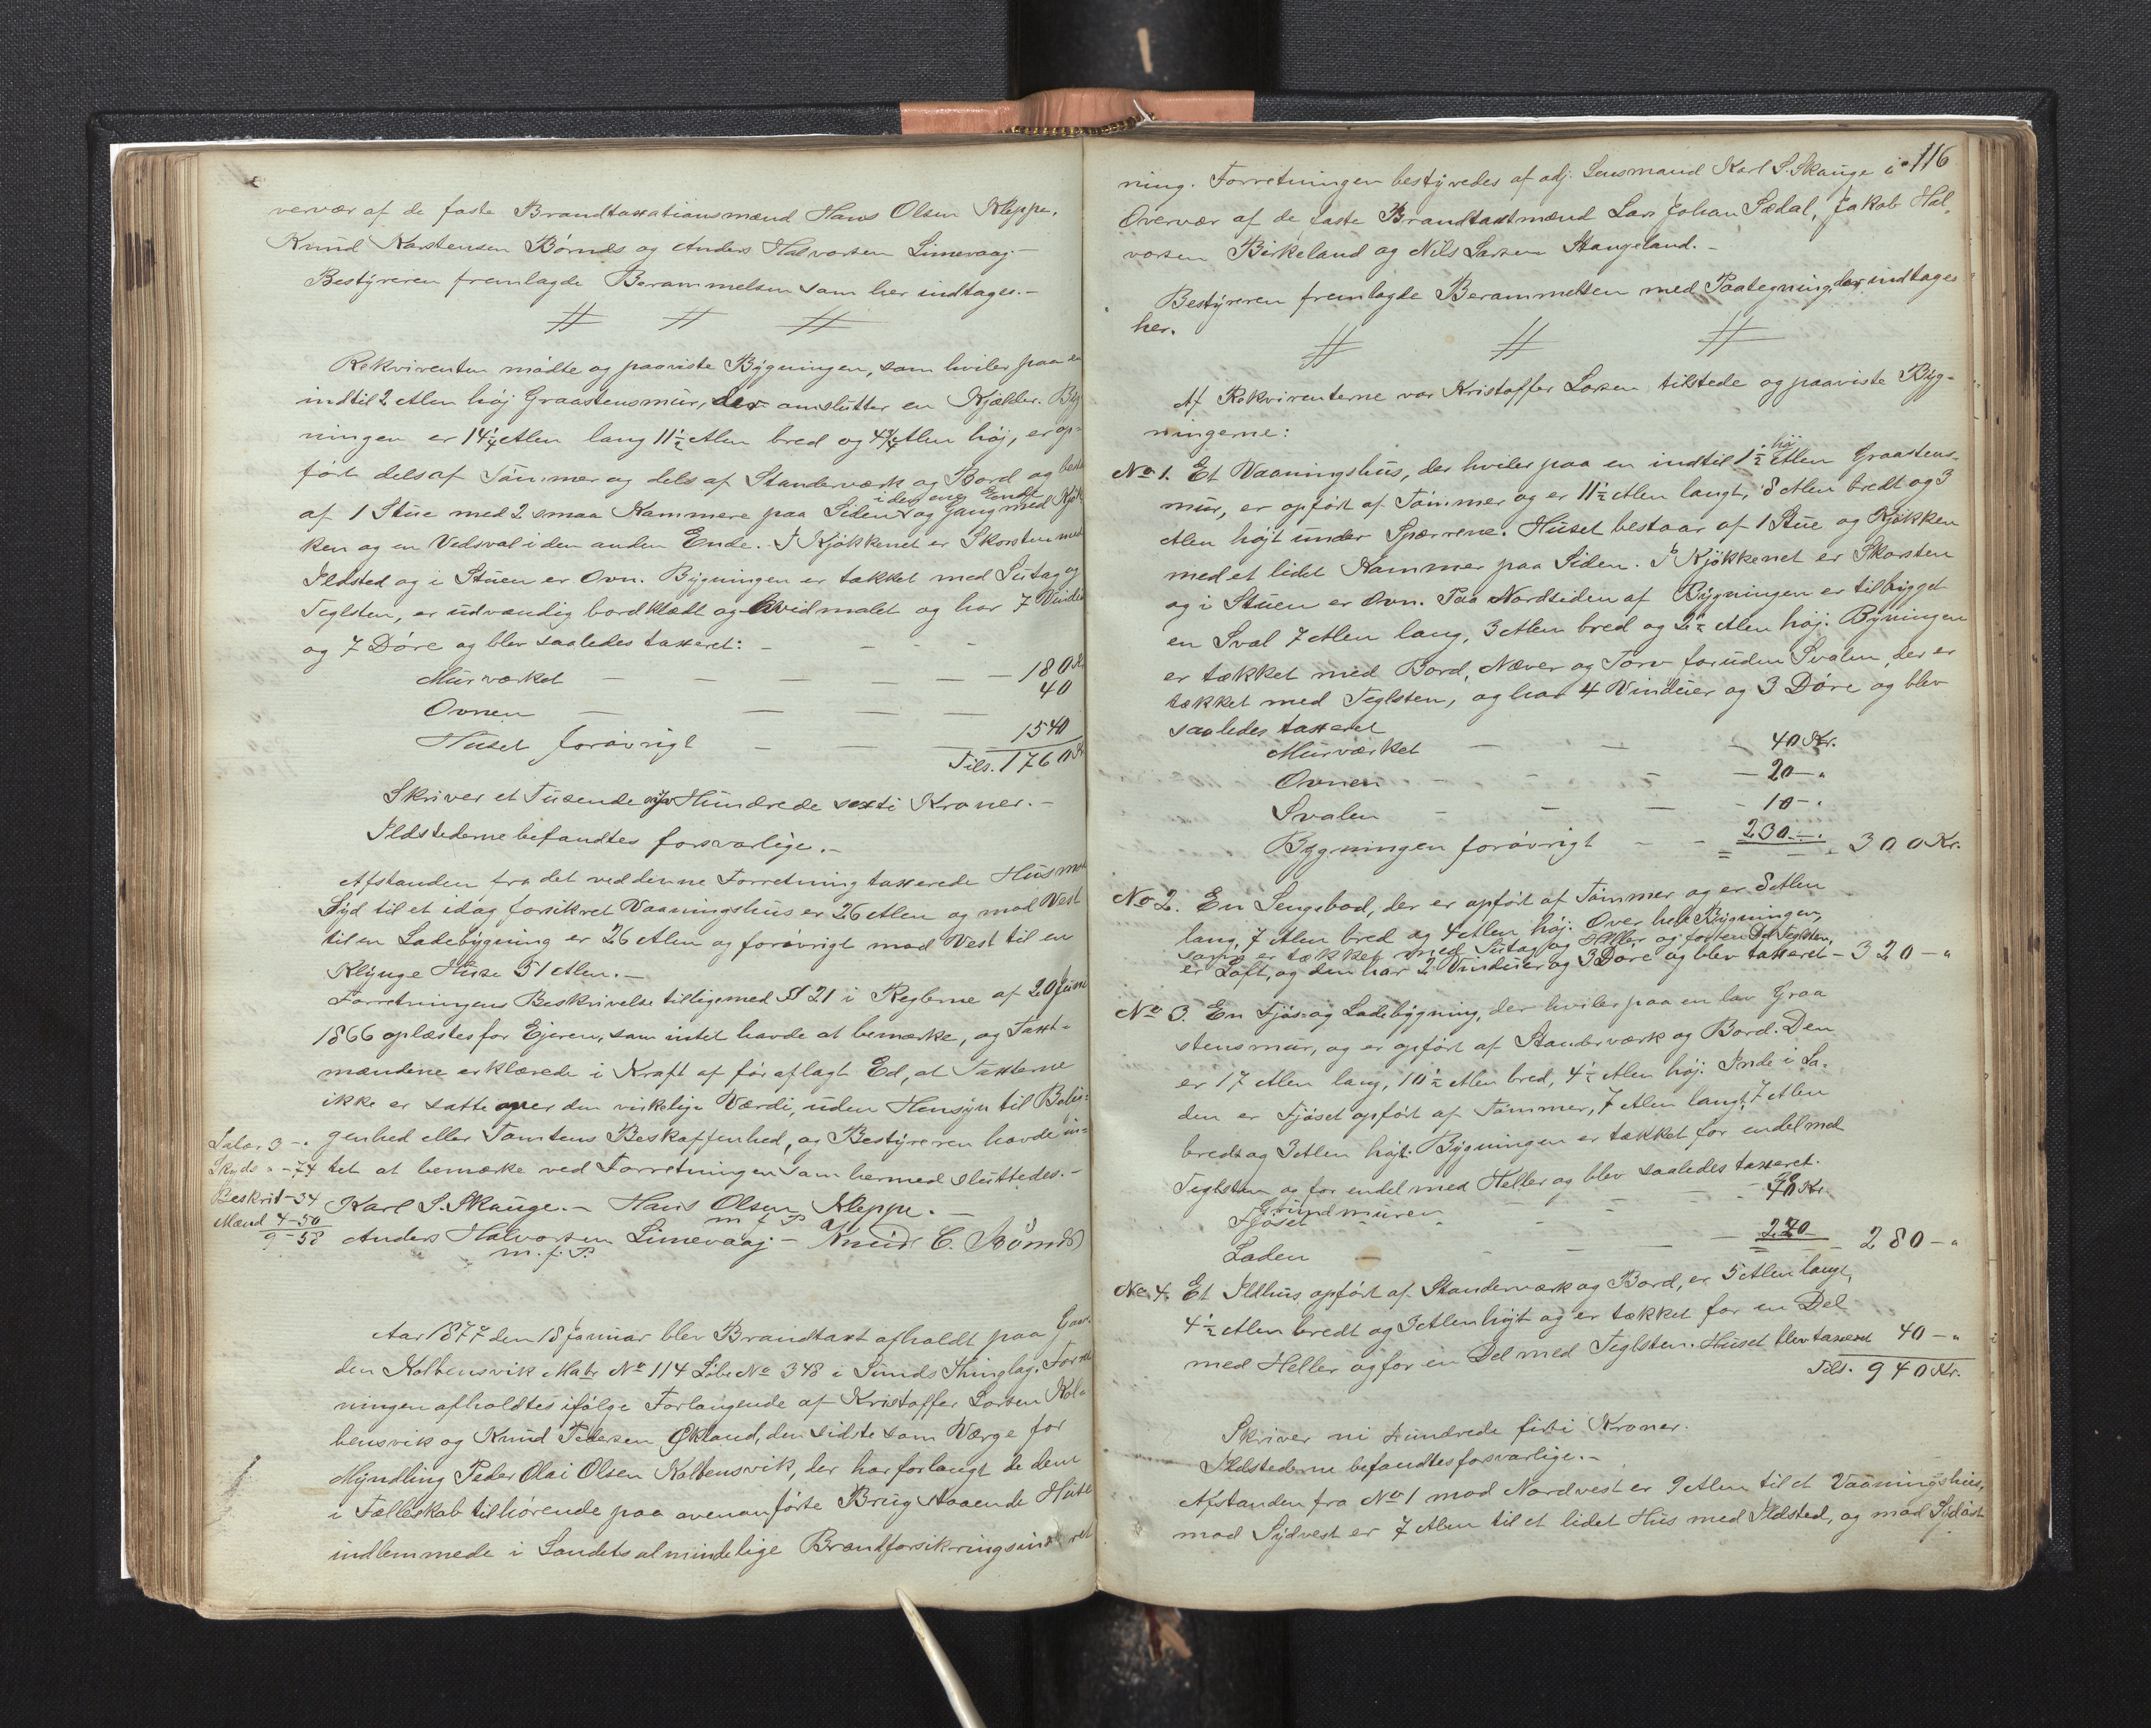 vervær af de faste Brandtaxationsmænd Hans Olsen Kleppe,
Knud Karstensen Bömds og Anders Halvorsen Limevaag.
Bestyreren fremlagde Berammelsen som her indtages.-
# # #
Rekvirenten mödte og paaviste Bygningen, som hviler paa en
indtil 2 Alen höj Graastensmur, der omslutter en Kjælder. Byg
ningen er 14 1/4 Alen lang 11 1/2 Alen bred og 4 3/4 Alen höj, er op-
fört dels af Tömmer og dels af Standerværk og Bord og best
i den ene Ende
af 1 Stue med 2 smaa Kammere paa Siden og Gang med Kjök
ken og en Vedsval i den anden Ende. I Kjökkenet er Skorsten med
Ildsted og i Stuen er Ovn. Bygningen er tækket med Sutag og
Teglsten, er udvændig bordklædt og hvidmalet og har 7 Vindu
og 7 Döre og blev saaledes taxeret:
Murværket - - - - - 180 Kr
Ovnen - - - - - 40
Huset forövrigt - - - 1540
Tils. 1760 Kr
Skriver et Tusende syv Hundrede sexti Kroner.-
Ildstederne befandtes forsvarlige.-
Afstanden fra det ved denne Forretning taxerede Hus mod
Syd til et idag forsikret Vaaningshus er 26 Alen og mod Vest
til en Ladebygning er 26 Alen og forövrigt mod Vest til en
Klynge Huse 51 Alen.-
Forretningens Beskrivelse tilligemed § 21 i Reglerne af 20 Juni
1866 oplæstes for Ejeren, som intet havde at bemærke, og Taxt-
mændene erklærede i Kraft af för aflagt Ed, at Taxterne
ikke er satte over den virkelige Værdi, uden Hensyn til Belig-
Salær 3 -. genhed eller Tomtens Beskaffenhed, og Bestyreren havde in-
Skyds " - 74 tet at bemærke ved Forretningen som hermed sluttedes.-
Beskriv - 34 Karl S. Skauge.- Hans Olsen Kleppe.-
Mænd 4 - 50 m f P
9 - 58 Anders Halvorsen Limevaag - Knud C. Bömds
m. f. P.
Aar 1877 den 18 Januar blev Brandtaxt afholdt paa Gaar
den Kolbensvik Matr No 114 Löbe No 348 i Sunds Thinglag. Forret
ningen afholdtes ifölge Forlangende af Kristoffer Larsen Kol-
bensvik og Knud Pedersen Økland, den sidste som Værge for
Myndling Peder Olai Olsen Kolbensvik, der har forlangt de dem
i Fælleskab tilhörende paa ovenanförte Brug staaende Huse
indlemmede i Landets almindelige Brandforsikringsindret
116
ning. Forretningen bestyredes af adj. Lensmand Karl S. Skauge i
Overvær af de faste Brandtaxtmænd Lars Johan Sædal, Jakob Hal-
vorsen Birkeland og Nils Larsen Stangeland.-
Bestyreren fremlagde Berammelsen med Paategning, der indtages
her.
# # #
Af Rekvirenterne var Kristoffer Larsen tilstede og paaviste Byg-
ningerne:
höj
No 1. Et Vaaningshus, der hviler paa en indtil 1 1/2 Alen Graastens-
mur, er opfört af Tömmer og er 11 1/2 Alen langt, 8 Alen bredt og 3
Alen höjt under Spærrene. Huset bestaar af 1 Stue og Kjökken
med et lidet Kammer paa Siden. I Kjökkenet er Skorsten
og i Stuen er Ovn. Paa Nordsiden af Bygningen er tilbygget
en Sval 7 Alen lang, 3 Alen bred og 2 1/2 Alen höj. Bygningen
er tækket med Bord, Næver og Torv foruden Svalen, der er
tækket med Teglsten, og har 4 Vinduer og 3 Döre og blev
saaledes taxeret
Murværket - - - - 40 Kr.
Ovnen - - - - 20 - "
Svalen - - - - 10 - "
Bygningen forövrigt - - 230 - . 300 Kr.
No 2. En Sengebod, der er opfört af Tömmer og er 8 Alen
lang, 7 Alen bred og 4 Alen höj. Over hele Bygningen,
som er tækket med Sutag og Heller og for en Del Teglsten,
er Loft, og den har 2 Vinduer og 3 Döre og blev taxeret - 320 - "
No 3. En Fjös- og Ladebygning, der hviler paa en lav Graa
stensmur, og er opfört af Standerværk og Bord. Den
er 17 Alen lang, 10 1/2 Alen bred, 4 1/2 Alen höj. Inde i La-
den er Fjöset opfört af Tömmer, 7 Alen langt, 7 Alen
bredt og 3 Alen höjt. Bygningen er tækket for endel med
Teglsten og for endel med Heller og blev saaledes taxeret.
Grundmuren
Fjöset - - - 40 Kr.
Laden - - - 240 - 280 - "
No 4. Et Ildhus opfört af Standerværk og Bord, er 5 Alen langt,
4 1/2 Alen bredt og 3 Alen höjt og er tækket for en Del
med Heller og for en Del med Teglsten. Huset blev taxeret 40 - "
Tils. 940 Kr.
Skriver ni Hundrede firti Kroner.
Ildstederne befandtes forsvarlige.-
Afstanden fra No 1 mod Nordvest er 9 Alen til et Vaaningshus,
mod Sydvest er 7 Alen til et lidet Hus med Ildsted, og mod Sydöst